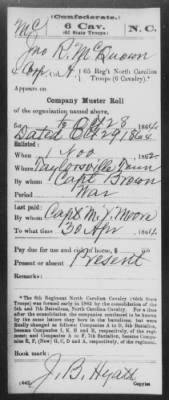 (Confederate.)
Mc 6 Cav. N.C.
(65 State Troops)
Jno R. McQuown
Corp., Co. A, 65 Reg't North Carolina Troops (6 Cavalry).*
Appears on
Company Muster Roll
of the organization named above,
for to Oct 28, 1864.
Dated Oct 29 1864
Enlisted:
When 1 Nov, 1862.
Where Taylorsville Tenn
By whom Capt Brown
Period War
Last paid:
By whom Capt M. V. Moore
To what time 30 Apr, 1864.
Pay due for use and risk of horse, $ 100
Present or absent Present
Remarks:
*The 6th Regiment North Carolina Cavalry (65th State
Troops) was formed early in 1863 by the consolidation of the
5th and 7th Battalions, North Carolina Cavalry. For a time
after the consolidation the companies continued to be known
by the same letters they bore in the battalions, but were
finally changed as follows: Companies A to D, 5th Battalion,
became Companies I, K, H and E, respectively, of the regi-
ment; and Companies A to F, 7th Battalion, became Companies
Book mark:
J. B. Hyatt
(642) Copyist.